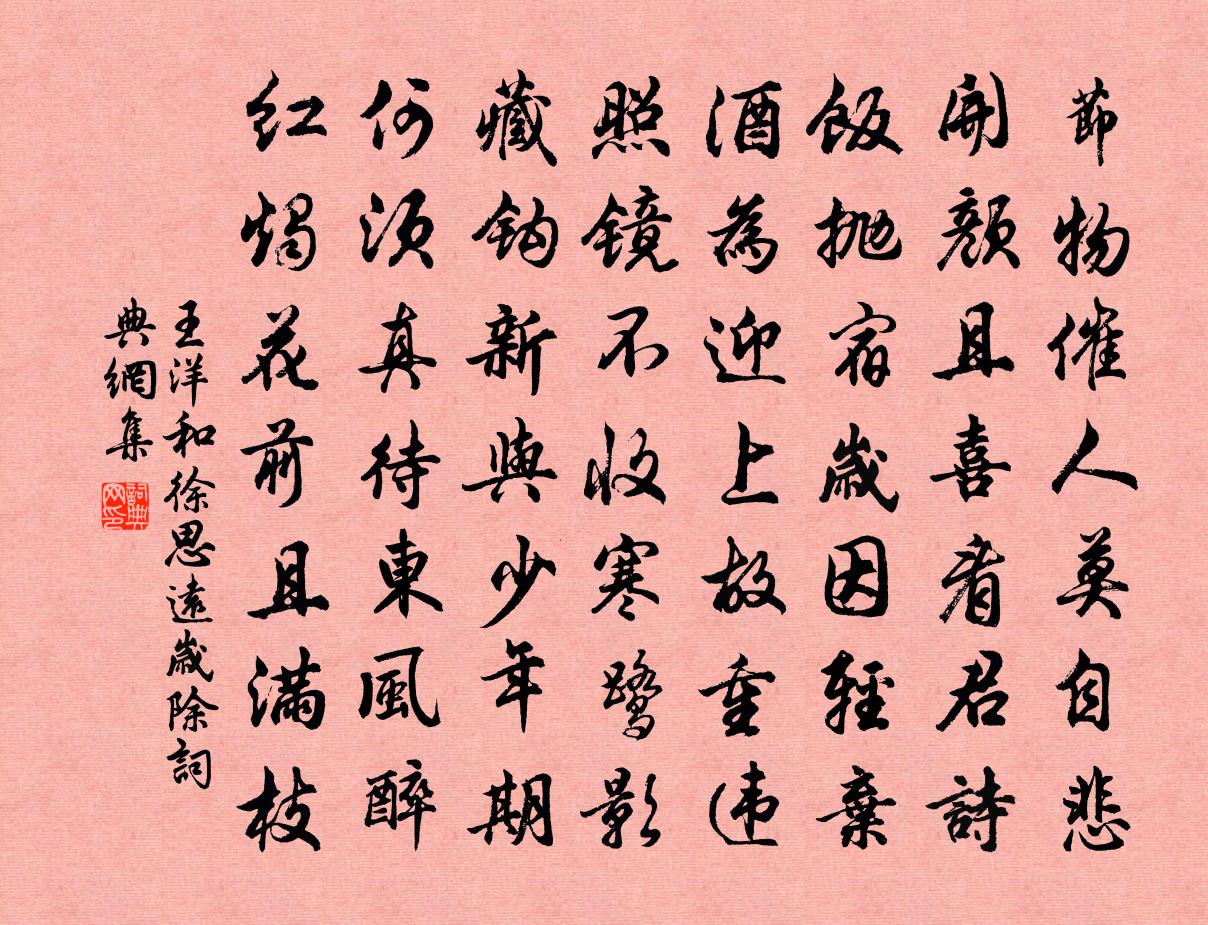 節物催人莫自悲
開顏且喜看君詩
飯拋宿歲因輕棄
酒為迎上故重違
照鏡不收寒鷺影
藏鈎新與少年期
何須真待東風醉
紅燭花前且滿枝
王洋和徐思遠歲除詞
典網集
詞典網印